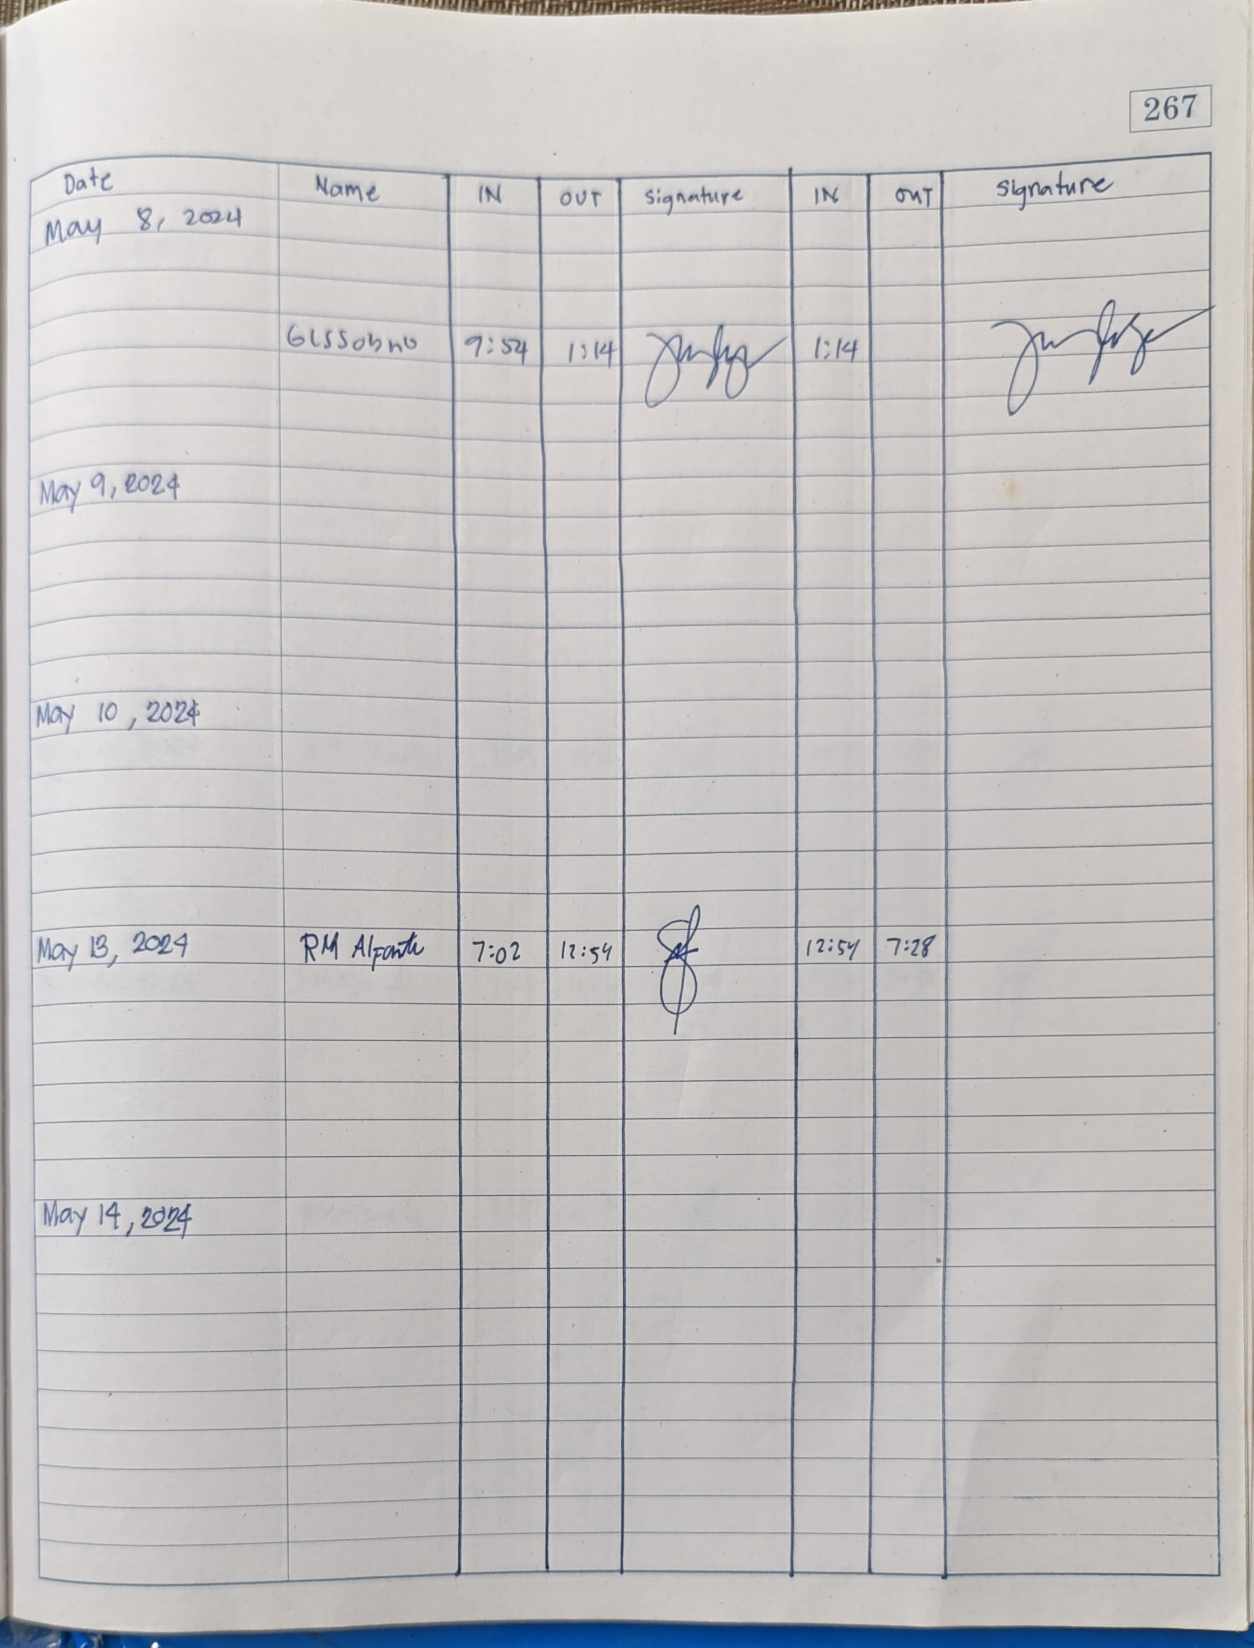 267
Date Name IN OUT Signature IN OUT Signature
May 8, 2024
GLSSobno 9:54 1:14 1:14
May 9, 2024
May 10, 2024
May 13, 2024 RM Alfante 7:02 12:54 12:54 7:28
May 14, 2024